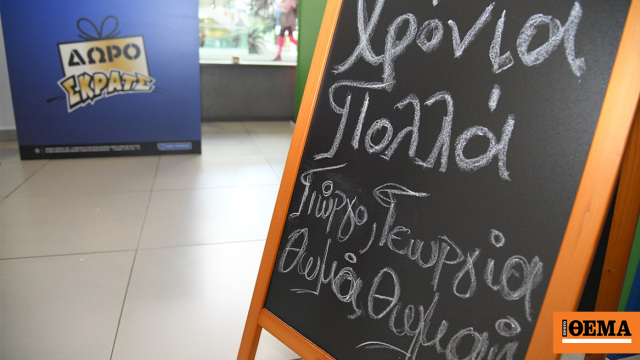 ΔΩΡΟ
ΣΚΡΑΤΣ
Χρόνια
Πολλά
Γιώργο, Γεωργία
Θωμάς Θωμαή
ΘΕΜΑ